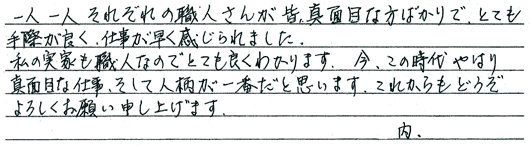 一人一人それぞれの職人さんが皆、真面目な方ばかりで、とても
手際が良く、仕事が早く感じられました。
私の実家も職人なのでとても良くわかります。今、この時代やはり
真面目な仕事、そして人柄が一番だと思います。これからもどうぞ
よろしくお願い申し上げます。
内、